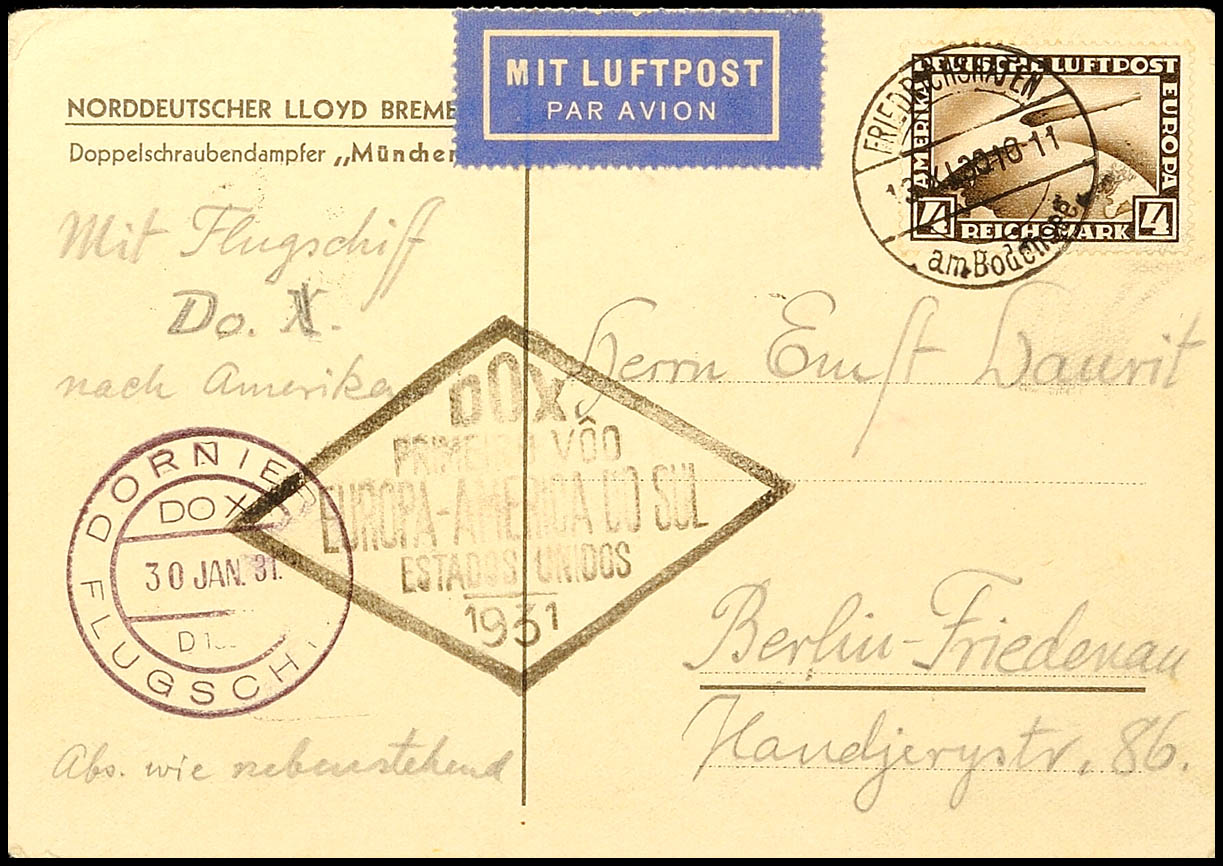 NORDDEUTSCHER LLOYD BREME
Doppelschraubendampfer „München
MIT LUFTPOST
PAR AVION
DEUTSCHE LUFTPOST
EUROPA
AMERIKA
4 4
REICHSMARK
FRIEDRICHSHAFEN
30 10-11
am Bodensee
Mit Flugschiff
Do. X.
nach Amerika
Herrn Ernst
DOX
PRIMEIRO VÔO
EUROPA-AMERICA DO SUL
ESTADOS UNIDOS
1931
DORNIER
DO X
30 JAN. 31.
FLUGSCH
Berlin-Friedenau
Handjerystr. 86.
Abs. wie nebenstehend